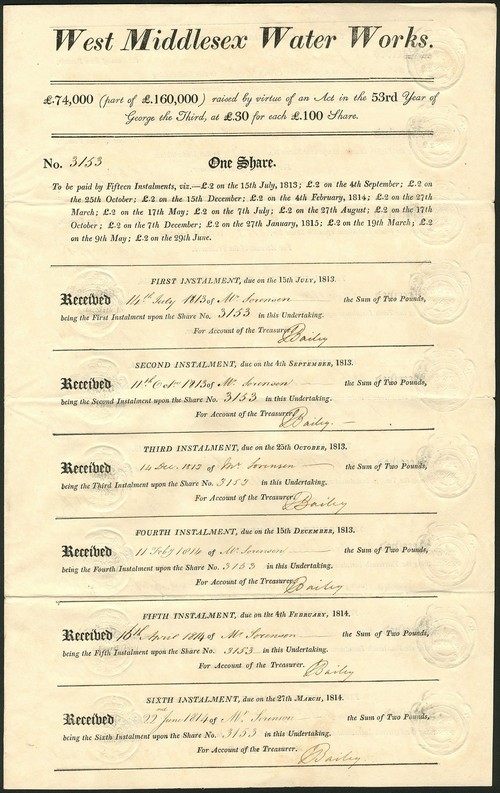 West Middlesex Water Works.
£.74,000 (part of £.160,000) raised by virtue of an Act in the 53rd Year of
George the Third, at £.30 for each £.100 Share.
No. 3153 One Share.
To be paid by Fifteen Instalments, viz.—£.2 on the 15th July, 1813; £.2 on the 4th September; £.2 on
the 25th October; £.2 on the 15th December; £.2 on the 4th February, 1814; £.2 on the 27th
March; £.2 on the 17th May; £.2 on the 7th July; £.2 on the 27th August; £.2 on the 17th
October; £.2 on the 7th December; £.2 on the 27th January, 1815; £.2 on the 19th March; £.2
on the 9th May; £.2 on the 29th June.
FIRST INSTALMENT, due on the 15th July, 1813.
Received 14th July 1813 of Mr Sorensen the Sum of Two Pounds,
being the First Instalment upon the Share No. 3153 in this Undertaking.
For Account of the Treasurer,
Bailey
SECOND INSTALMENT, due on the 4th September, 1813.
Received 11th Octr 1813 of Mr Sorensen the Sum of Two Pounds,
being the Second Instalment upon the Share No. 3153 in this Undertaking.
For Account of the Treasurer,
Bailey.
THIRD INSTALMENT, due on the 25th October, 1813.
Received 14 Dec. 1813 of Mr Sorensen the Sum of Two Pounds,
being the Third Instalment upon the Share No. 3153 in this Undertaking.
For Account of the Treasurer,
Bailey
FOURTH INSTALMENT, due on the 15th December, 1813.
Received 11 Feby 1814 of Mr Sorensen the Sum of Two Pounds,
being the Fourth Instalment upon the Share No. 3153 in this Undertaking.
For Account of the Treasurer,
Bailey
FIFTH INSTALMENT, due on the 4th February, 1814.
Received 16th April 1814 of Mr Sorensen the Sum of Two Pounds,
being the Fifth Instalment upon the Share No. 3153 in this Undertaking.
For Account of the Treasurer.
Bailey
SIXTH INSTALMENT, due on the 27th March, 1814.
Received 22 June 1814 of Mr Sorenson the Sum of Two Pounds,
being the Sixth Instalment upon the Share No. 3153 in this Undertaking.
For Account of the Treasurer.
Bailey